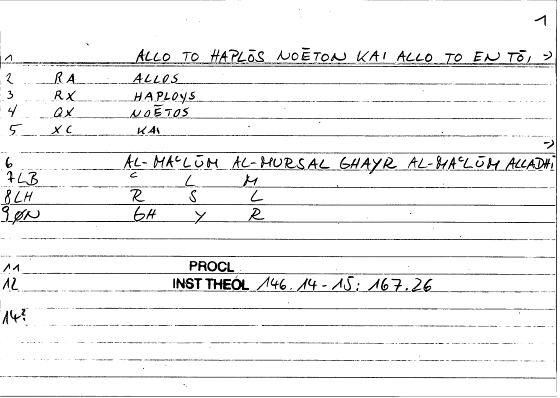 1
1 ALLO TO HAPLŌS NOĒTON KAI ALLO TO EN TŌI →
2 RA ALLOS
3 RX HAPLOYS
4 QX NOĒTOS
5 XC KAI
→
6 AL-MAᶜLŪM AL-MURSAL GHAYR AL-MAᶜLŪM ALLADHĪ
7 LB ᶜ L M
8 LH R S L
9 ØN GH Y R
11 PROCL
12 INST THEOL 146.14-15: 167.26
14?